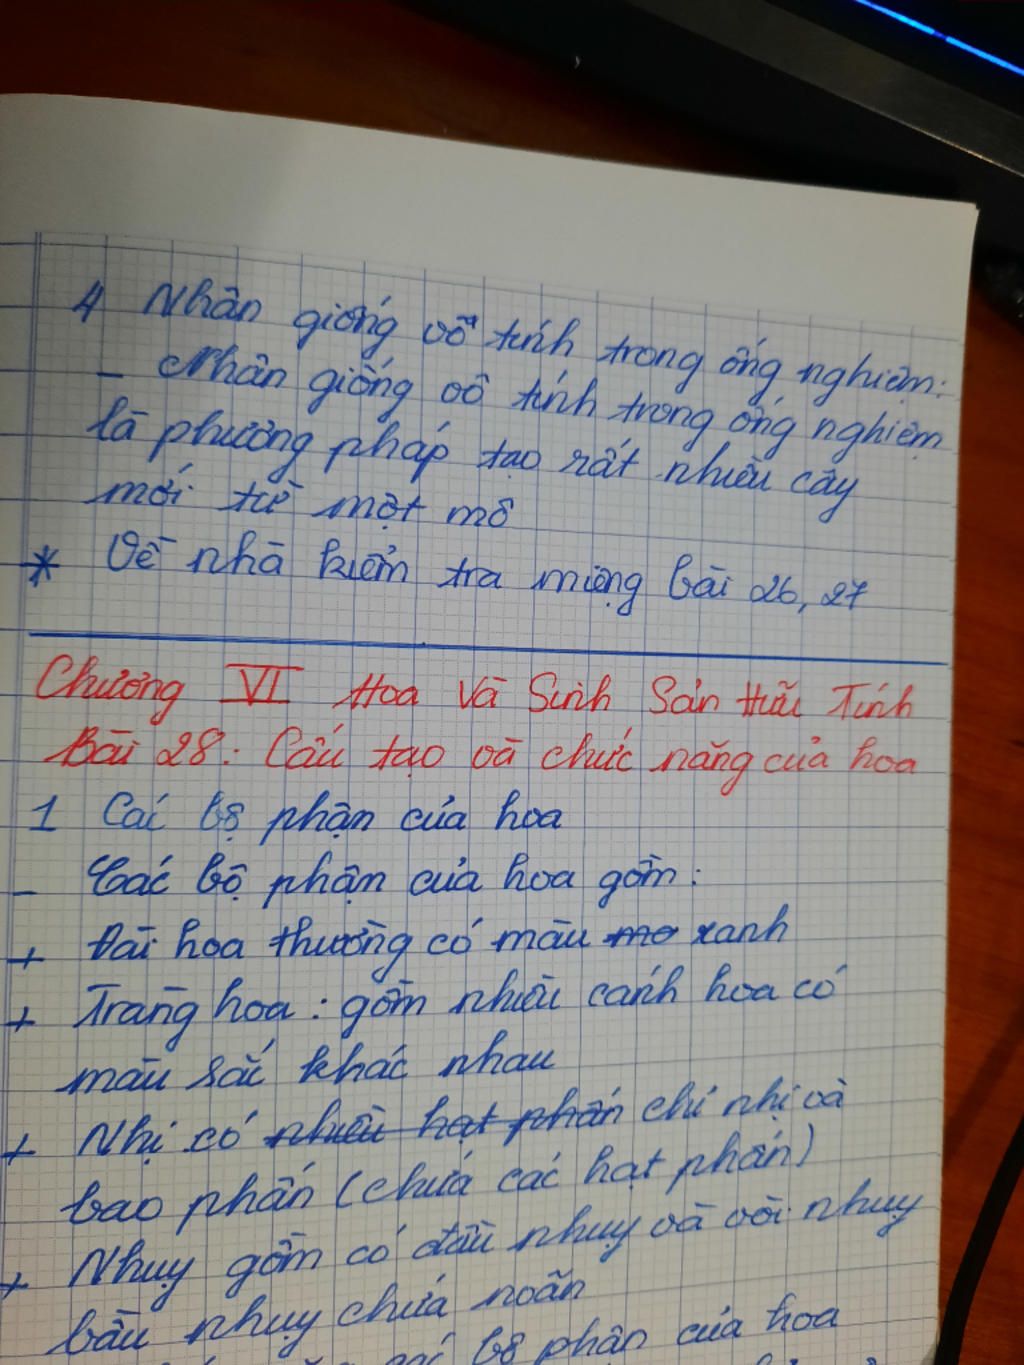 4 Nhân giống vô tính trong ống nghiệm:
- Nhân giống vô tính trong ống nghiệm
là phương pháp tạo rất nhiều cây
mới từ một mô
* Về nhà kiểm tra miệng bài 26, 27
Chương VI Hoa Và Sinh Sản Hữu Tính
Bài 28: Cấu tạo và chức năng của hoa
1 Các bộ phận của hoa
- Các bộ phận của hoa gồm:
+ Đài hoa thường có màu mo xanh
+ Tràng hoa: gồm nhiều cánh hoa có
màu sắc khác nhau
+ Nhị có nhiều hạt phấn chỉ nhị và
bao phấn (chứa các hạt phấn)
+ Nhuỵ gồm có đầu nhuỵ và vòi nhuỵ
bầu nhuỵ chứa noãn
bộ phận của hoa